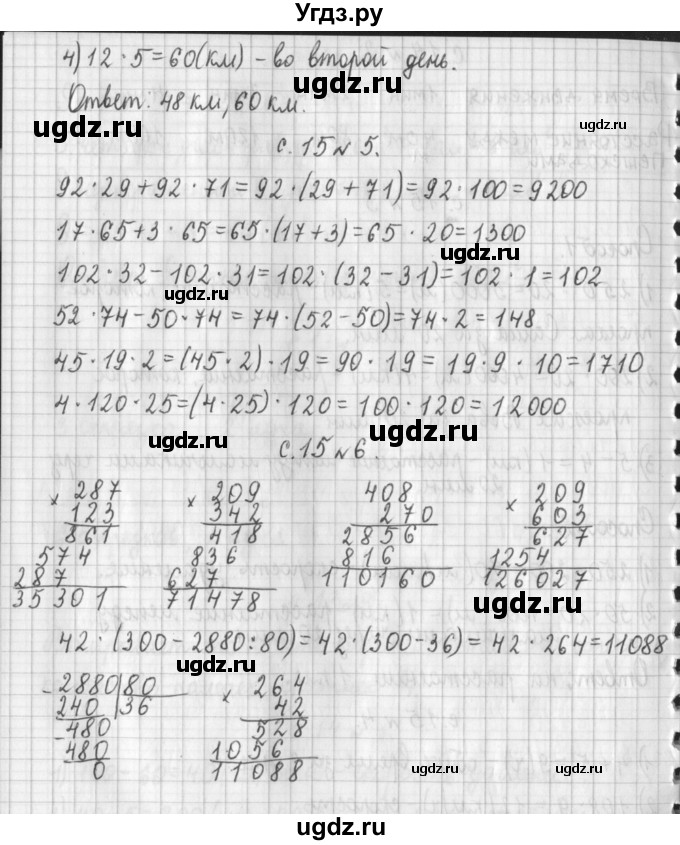 Угдз.ру
4) 12 · 5 = 60 (км) – во второй день.
Ответ: 48 км, 60 км.
с. 15 № 5.
92 · 29 + 92 · 71 = 92 · (29 + 71) = 92 · 100 = 9200
17 · 65 + 3 · 65 = 65 · (17 + 3) = 65 · 20 = 1300
102 · 32 – 102 · 31 = 102 · (32 – 31) = 102 · 1 = 102
52 · 74 – 50 · 74 = 74 · (52 – 50) = 74 · 2 = 148
45 · 19 · 2 = (45 · 2) · 19 = 90 · 19 = 19 · 9 · 10 = 1710
4 · 120 · 25 = (4 · 25) · 120 = 100 · 120 = 12000
с. 15 № 6.
× 287 × 209 408 × 209
123 342 270 603
861 418 2856 627
574 836 816 1254
287 627 110160 126027
35301 71478
42 · (300 – 2880 : 80) = 42 · (300 – 36) = 42 · 264 = 11088
– 2880 80 × 264
240 36 42
– 480 528
480 1056
0 11088
ugdz.ru
ugdz.ru
ugdz.ru
ugdz.ru
ugdz.ru
ugdz.ru
ugdz.ru
ugdz.ru
ugdz.ru
ugdz.ru
ugdz.ru
ugdz.ru
ugdz.ru